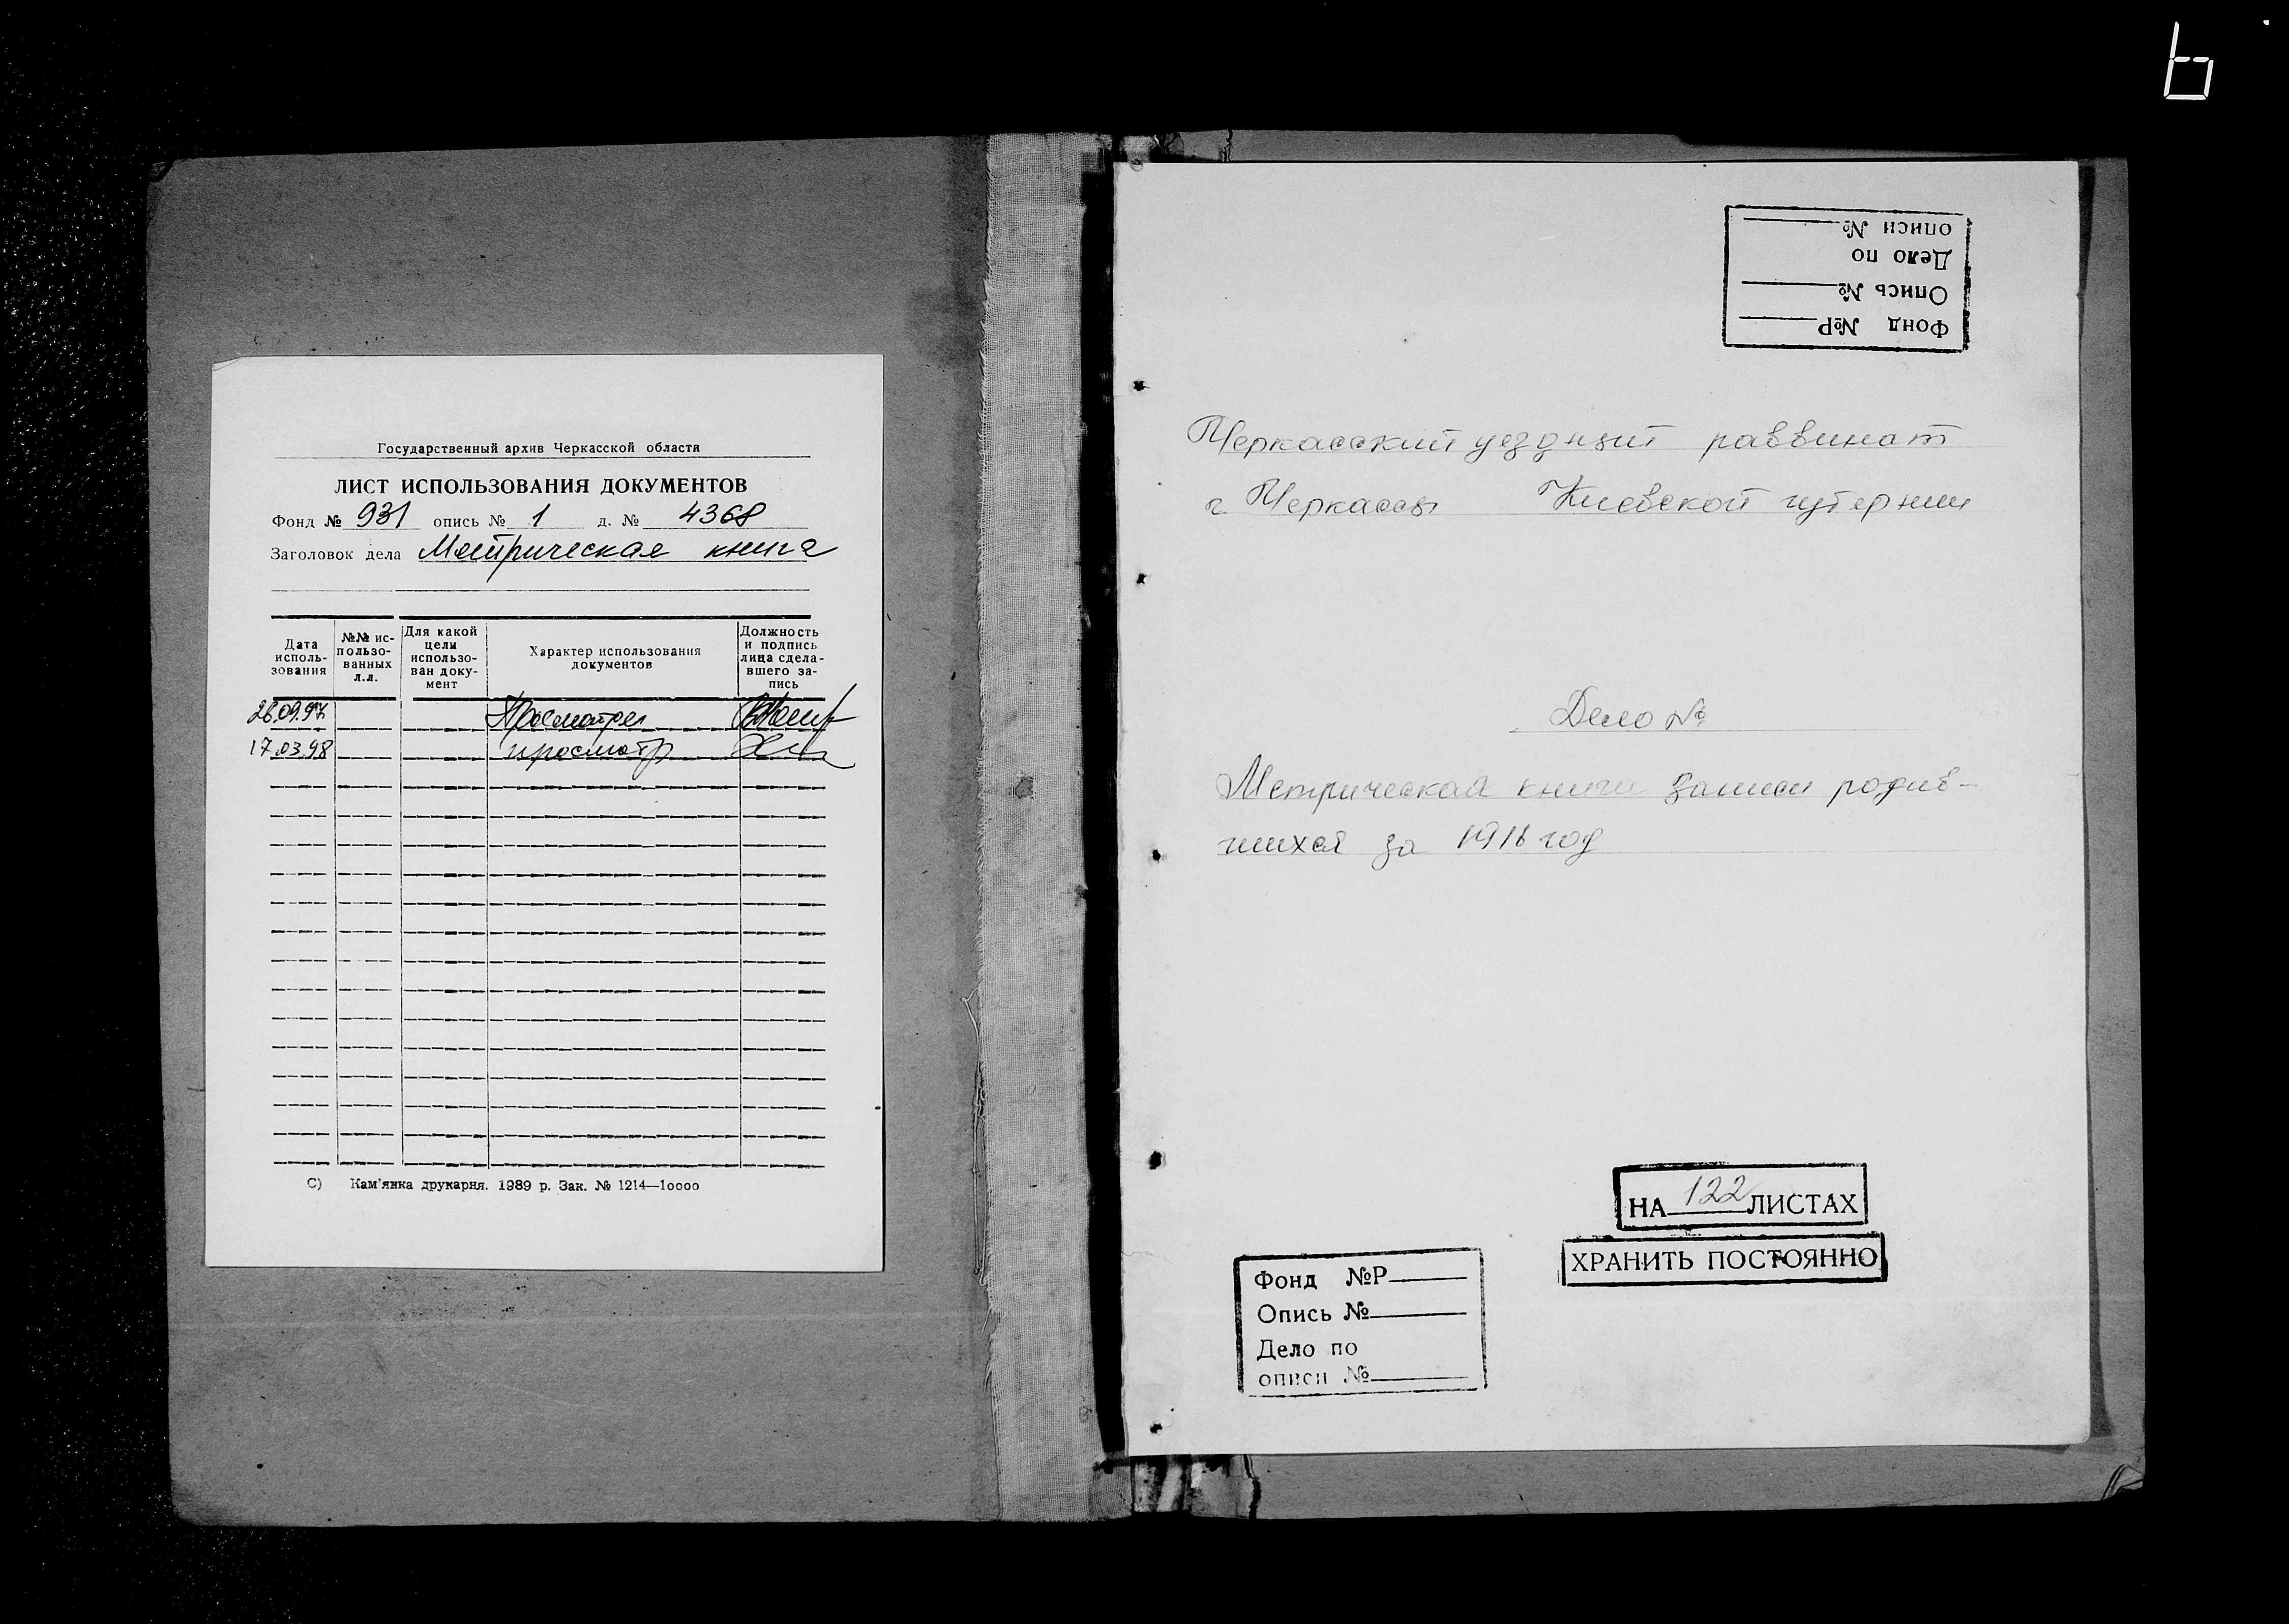 6
Государственный архив Черкасской области
ЛИСТ ИСПОЛЬЗОВАНИЯ ДОКУМЕНТОВ
Фонд № 931 опись № 1 д. № 4368
Заголовок дела Метрическая книга
Дата исполь-зования
№№ ис-пользо-ванных л.л.
Для какой цели использо-ван доку-мент
Характер использования документов
Должность и подпись лица сдела-вшего за-пись
26.09.97
17.03.98 просмотр
С) Кам'янка друкарня. 1989 р. Зак. № 1214—10000
Фонд №Р
Опись №
Дело по
описи №
Черкасский уездный раввинат
г. Черкассы Киевской губернии
Дело №
Метрическая книга записи родив-
шихся за 1916 год
НА 122 ЛИСТАХ
ХРАНИТЬ ПОСТОЯННО
Фонд №Р
Опись №
Дело по
описи №